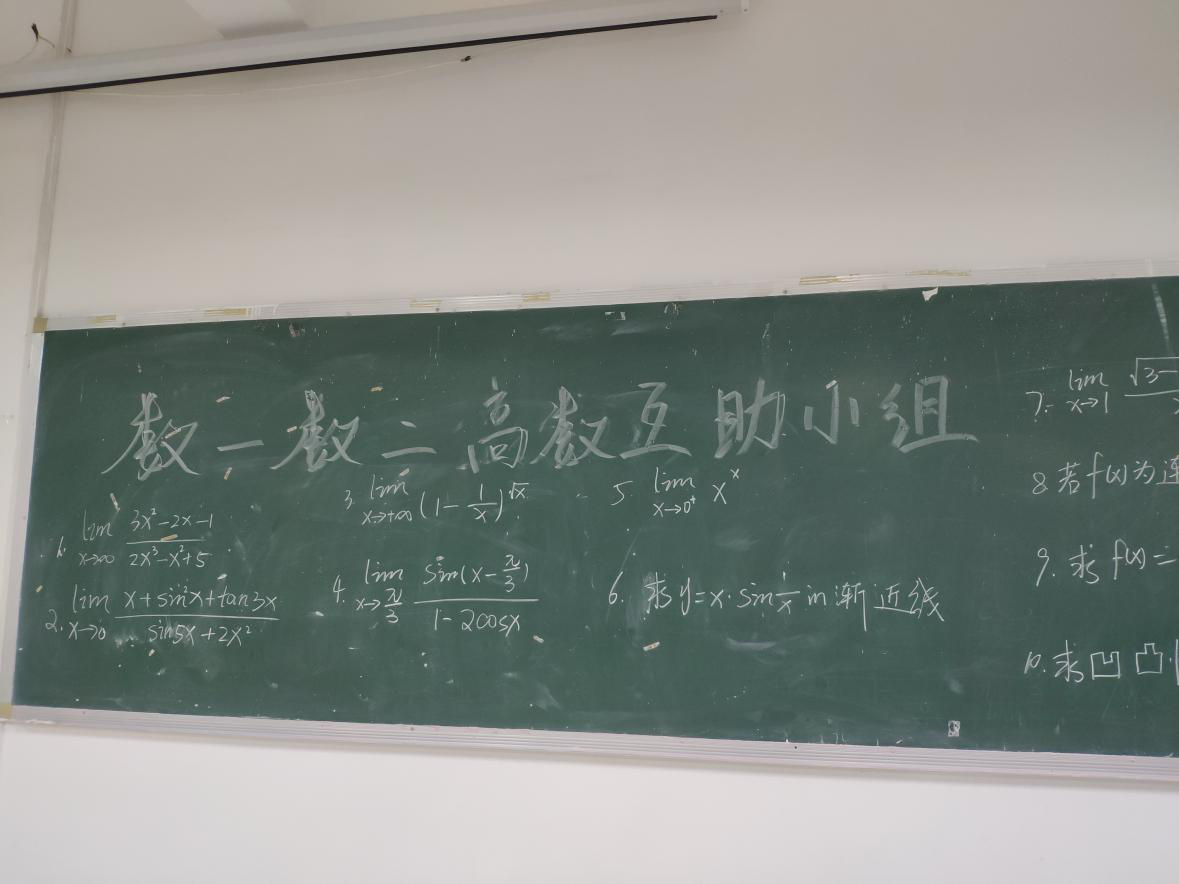 数一数二高数互助小组
1. lim x→∞ (3x²-2x-1)/(2x³-x²+5)
2. lim x→0 (x+sin²x+tan3x)/(sin5x+2x²)
3. lim x→+∞ (1-1/x)^√x
4. lim x→π/3 sin(x-π/3)/(1-2cosx)
5. lim x→0⁺ x^x
6. 求y=x·sin1/x in渐近线
7. lim x→1 √3-
8. 若f(x)为
9. 求f(x)=
10. 求凹凸